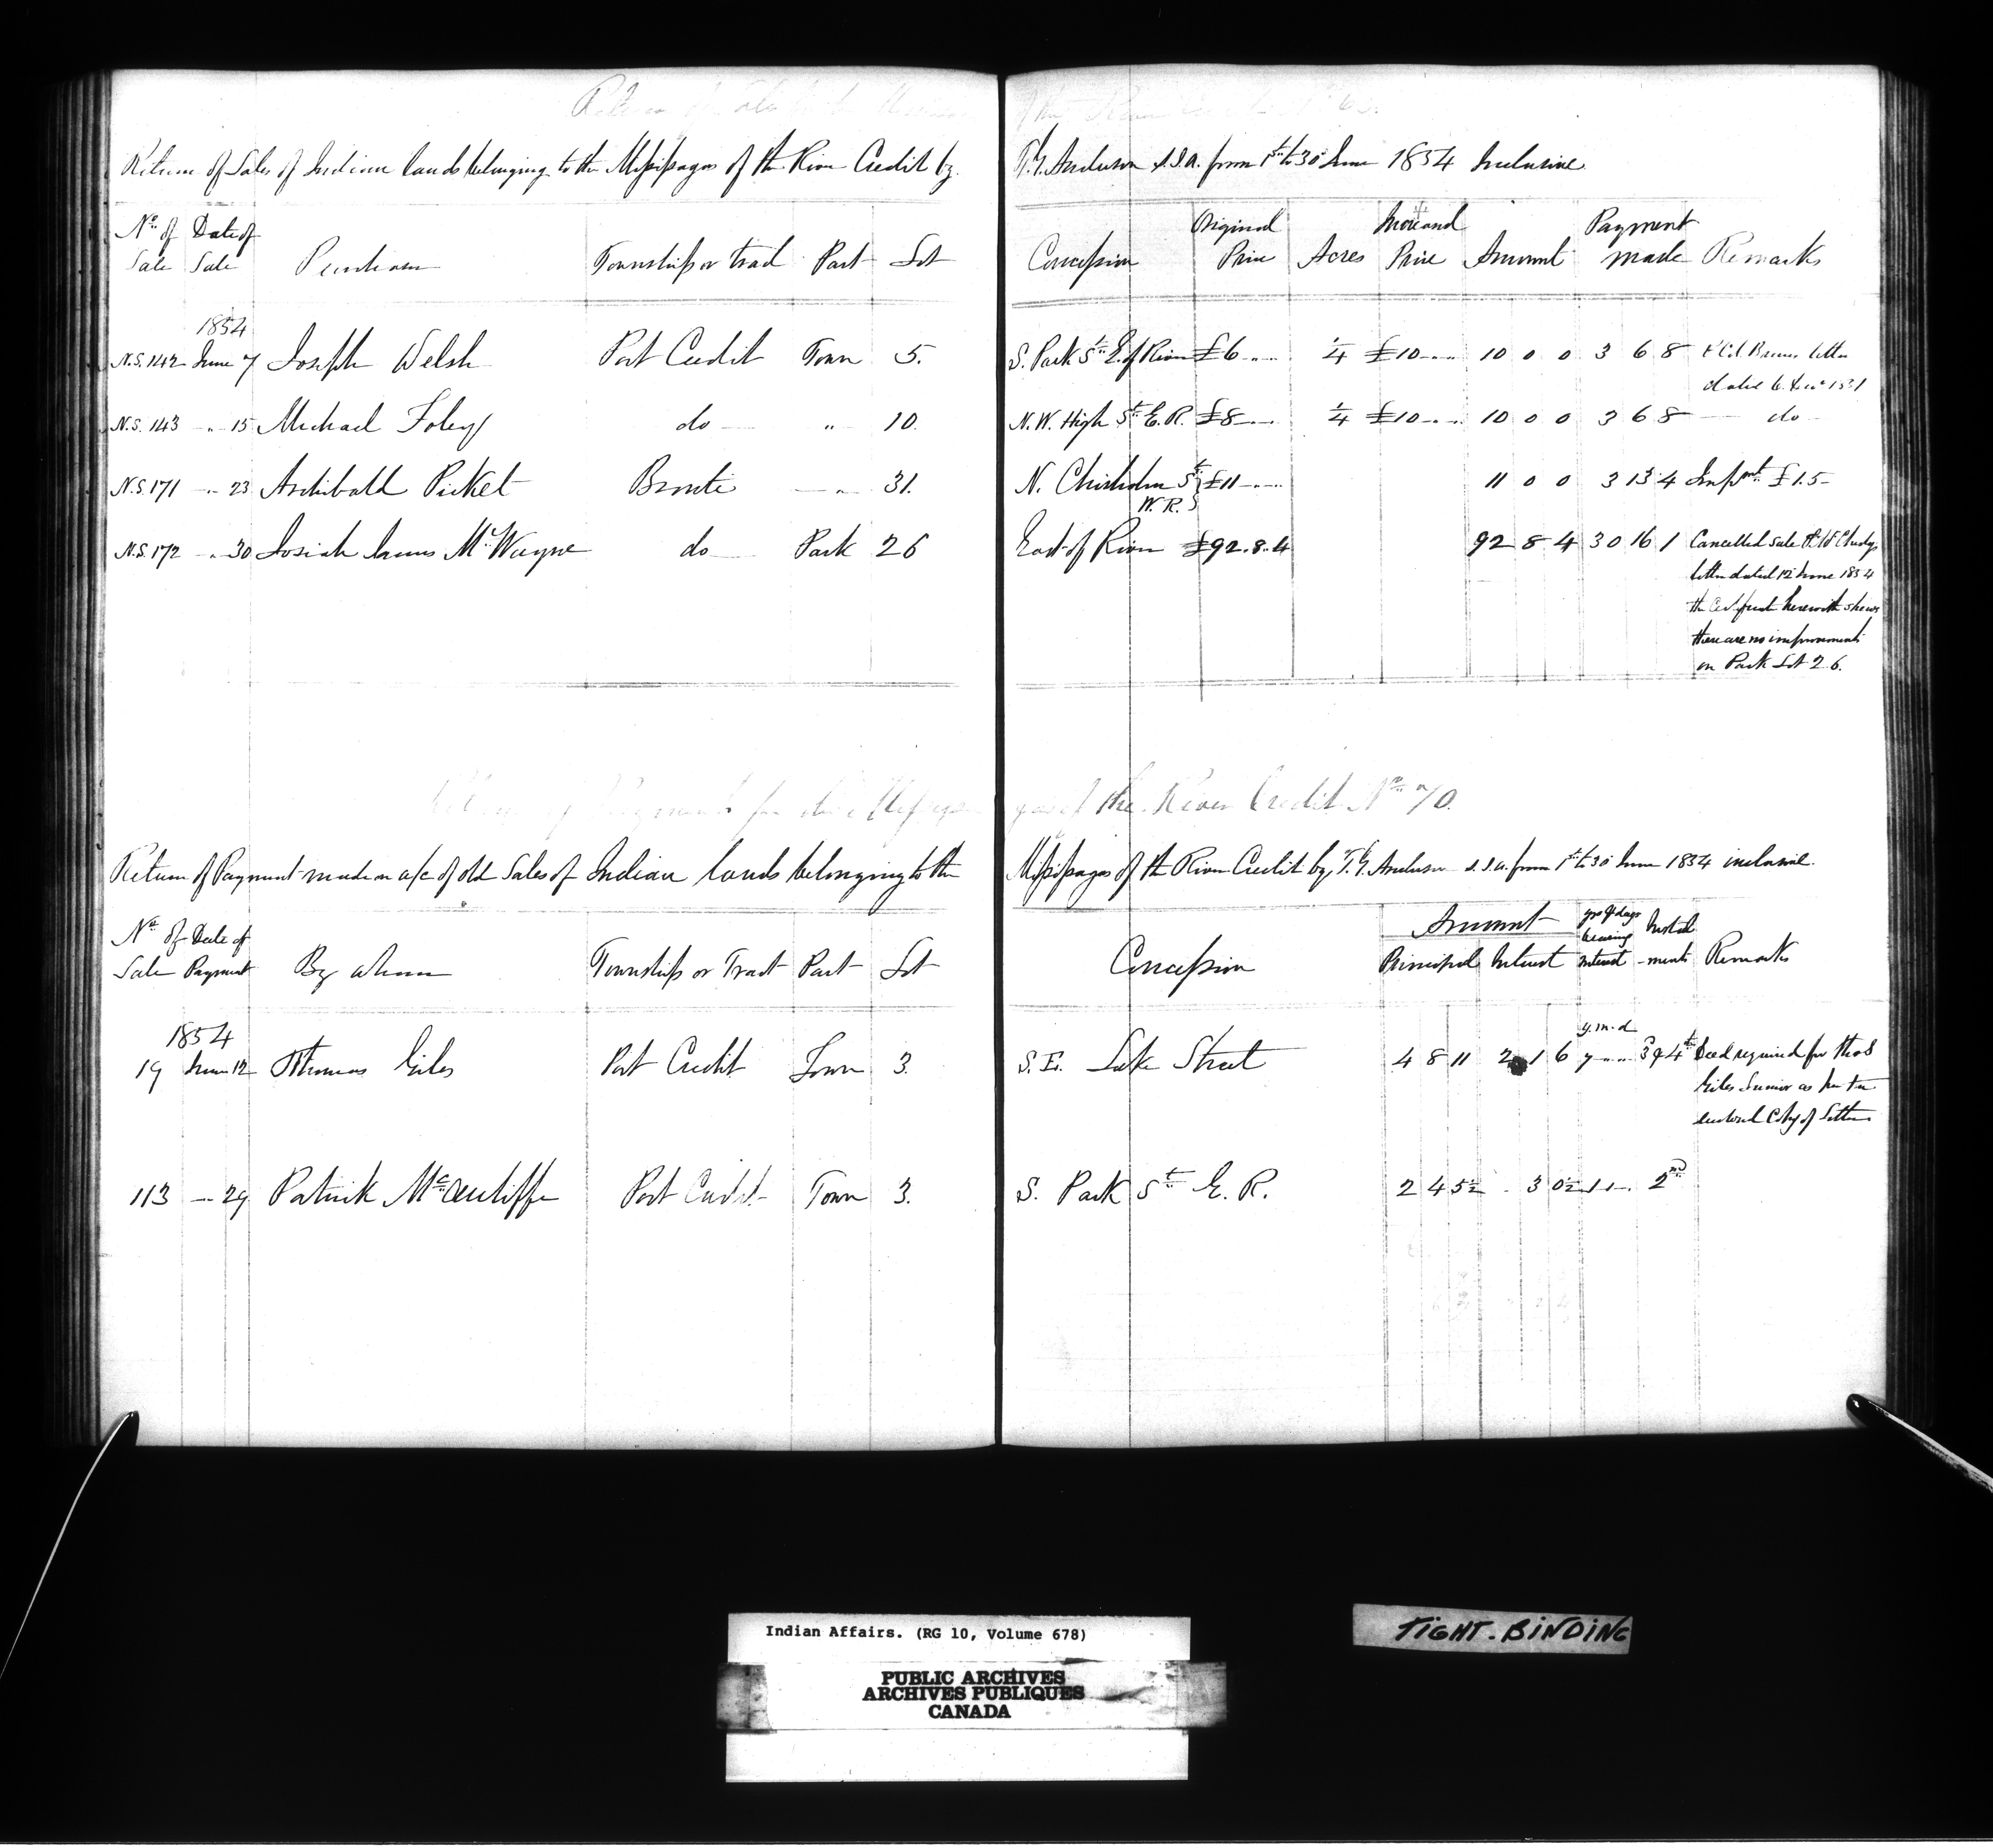 Return of Sales of Indian lands belonging to the Missisagas of the River Credit by T. G. Anderson S.I.A. from 1st to 30 June 1854 Inclusive
No. of Sale Date of Sale Purchaser Township or tract Part Lot Concession Original Price Acres Increased Price Amount Payment made Remarks
1854
N.S. 142 June 7 Joseph Welsh Port Credit Town 5. S. Park St. E. of River £6 .. .. ¼ £10 .. .. 10 0 0 3 6 8 Col. Bruce letter
dated
N.S. 143 " 15 Michael Foley do " 10. N.W. High St. E.R. £8 .. .. ¼ £10 .. .. 10 0 0 3 6 8 do
N.S. 171 " 23 Archibald Picket Bronte " 31. N. Chisholm St. £11 .. .. 11 0 0 3 13 4 Impmt £1.5-
W.R.
N.S. 172 " 30 Josiah James McWayne do Park 26 East of River £92.8.4 92 8 4 30 16 1 Cancelled Sale
letter dated 12 June 1854
the herewith shews
there are no improvements
on Park Lot 26.
of the River Credit No. 70.
Return of Payment made on a/c of old Sales of Indian lands belonging to the Missisagas of the River Credit by T. G. Anderson S.I.A. from 1st to 30 June 1854 inclusive.
No. of Sale Date of Payment By whom Township or Tract Part Lot Concession Amount Principal Interest yrs & days bearing Interest Instal-ments Remarks
1854 y. m. d
19 June 12 Thomas Giles Port Credit Town 3. S.E. Lake Street 4 8 11 2 1 6 7 .. .. 3 & 4th Deed required for Thos
Giles Junior as per
Copy of Letter
113 " 29 Patrick McAuliffe Port Credit Town 3. S. Park St. E.R. 2 4 5½ . 3 0½ 1 1 .. 2nd
Indian Affairs. (RG 10, Volume 678)
PUBLIC ARCHIVES
ARCHIVES PUBLIQUES
CANADA
TIGHT. BINDING